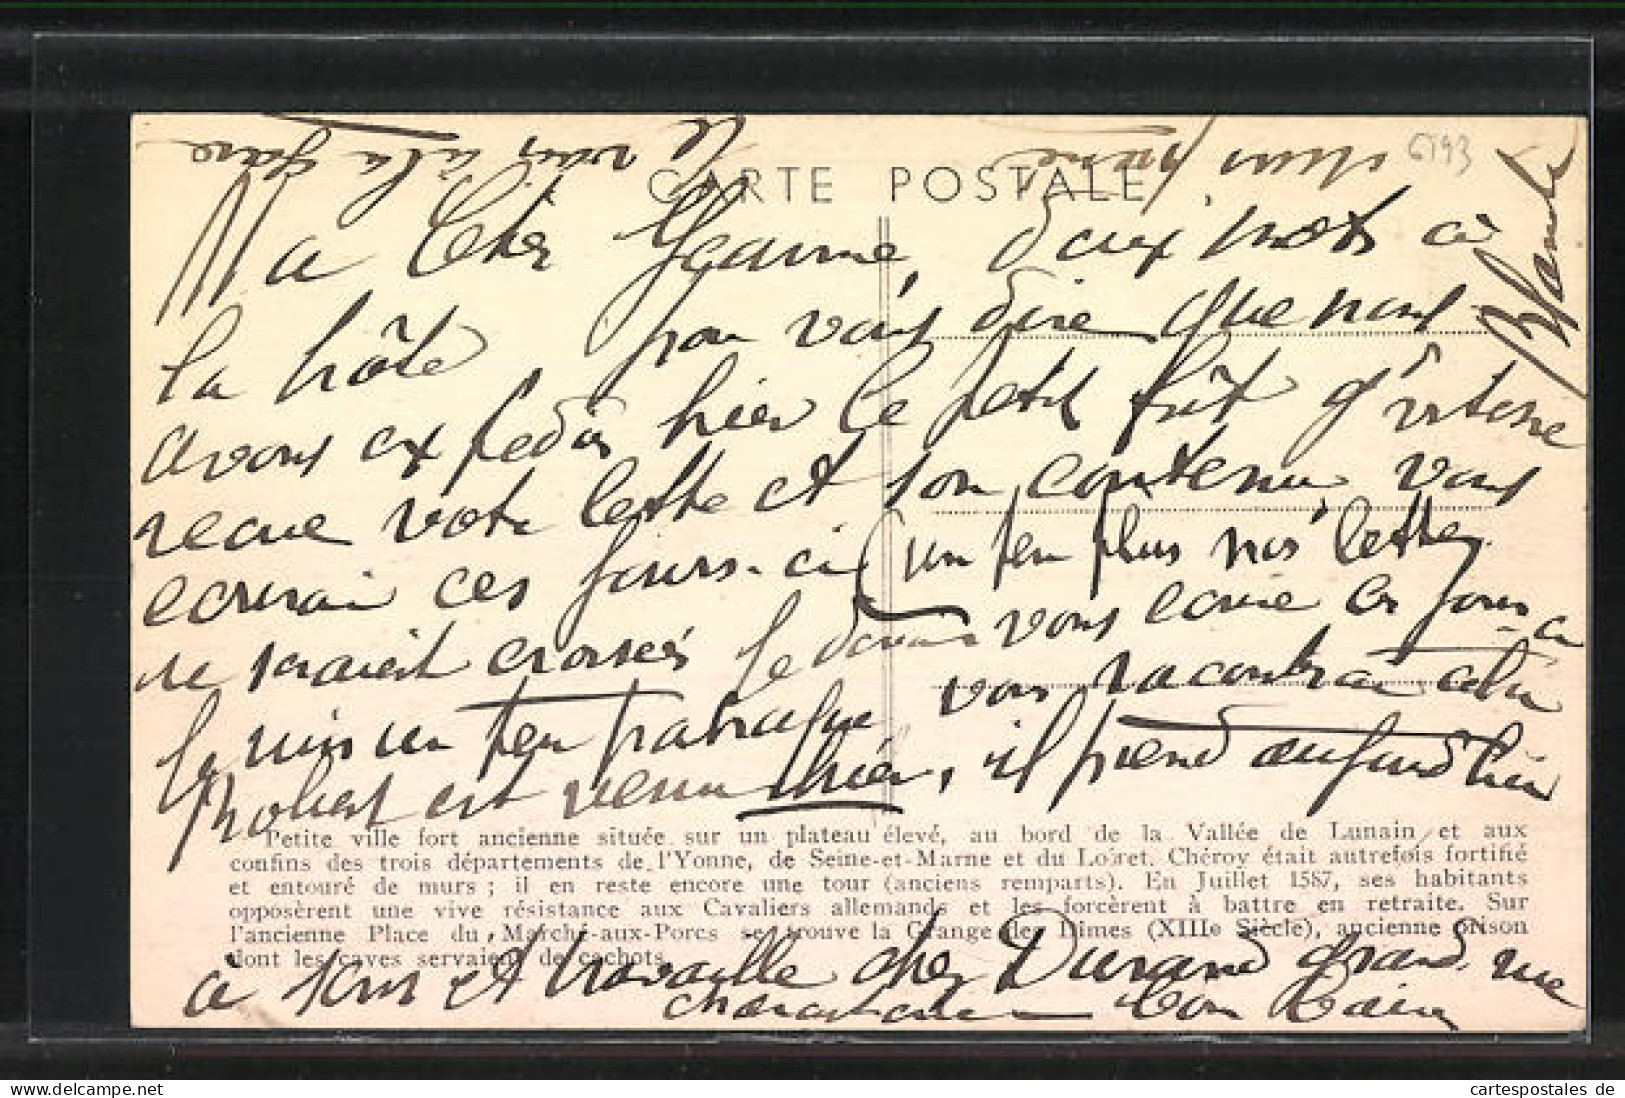 CARTE POSTALE
6193
Ma Cher Jeanne, deux mots à
la hôte pour vous dire que nous
avons expedié hier le petit fût g^r vitesse
recue votre lettre et son contenu, vous
ecrirai ces jours-ci (un peu plus nos lettres
se seraient croisées je devais vous ecrire ces jours ci
le vin un peu vous racontrai cela
Robert est venu hier, il prend aujourd'hui
Petite ville fort ancienne située sur un plateau élevé, au bord de la Vallée de Lunain, et aux
confins des trois départements de l'Yonne, de Seine-et-Marne et du Loiret. Chéroy était autrefois fortifié
et entouré de murs ; il en reste encore une tour (anciens remparts). En Juillet 1587, ses habitants
opposèrent une vive résistance aux Cavaliers allemands et les forcèrent à battre en retraite. Sur
l'ancienne Place du Marché-aux-Porcs se trouve la Grange des Dîmes (XIIIe Siècle), ancienne prison
dont les caves servaient de cachots.
à Sens et travaille chez Durand grand rue
charcuterie bon
Je vais à la gare
cartespostales de